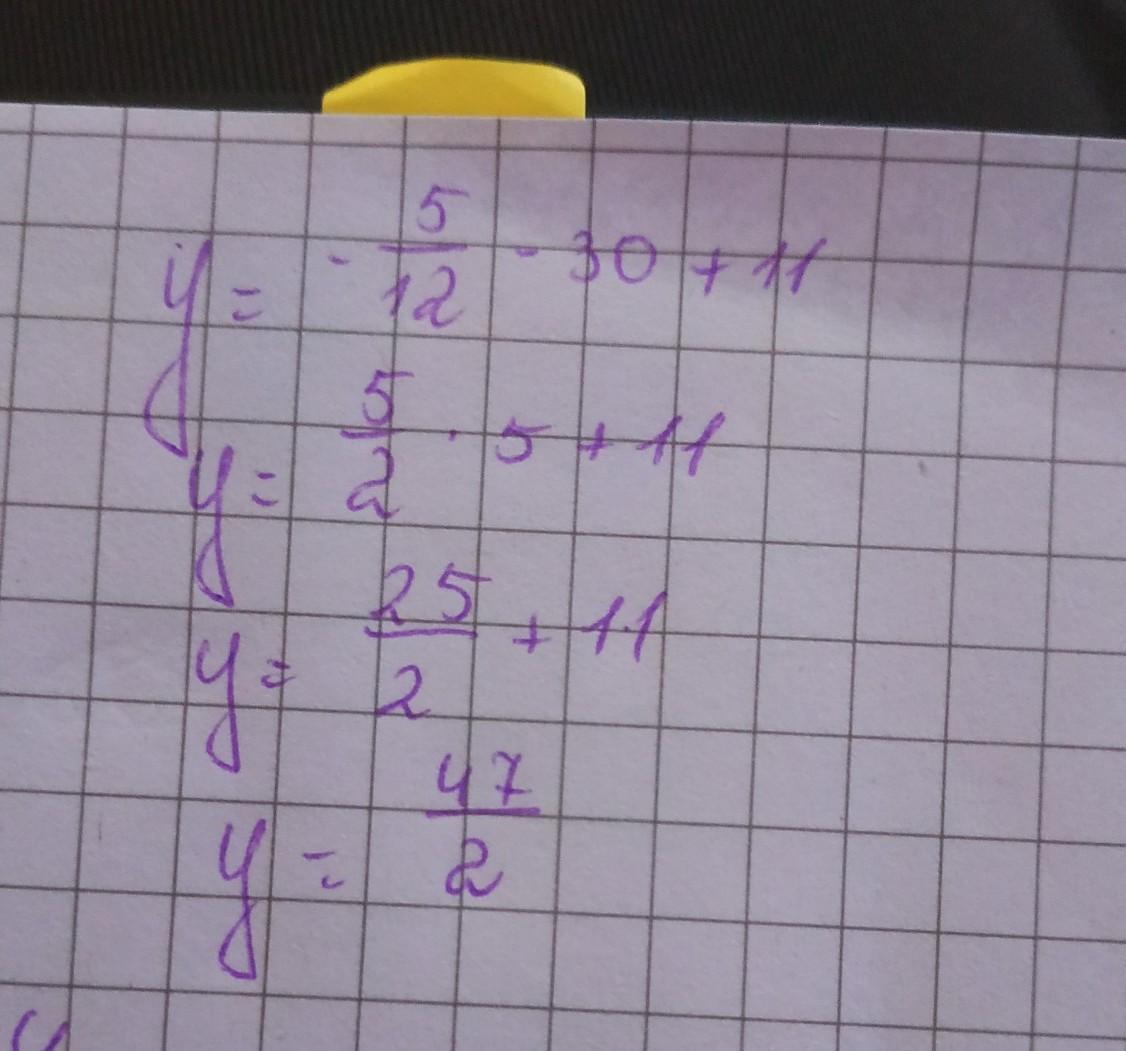 y = - 5/12 - 30 + 11
y = 5/2 · 5 + 11
y = 25/2 + 11
y = 47/2